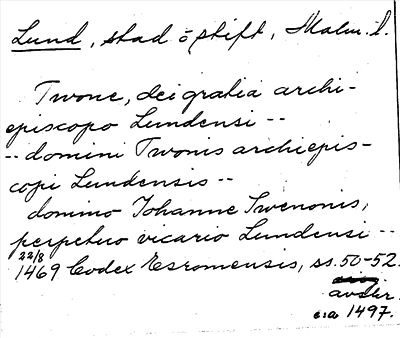 Lund, stad o stift, Malm. l.
Twone, dei gratia archi-
episcopo Lundensi --
-- domini Twonis archiepis-
copi Lundensis --
domino Johanne Swenonis,
perpetuo vicario Lundensi --
22/8
1469 Codex Esromensis, ss. 50-52.
avskr.
ca 1497.